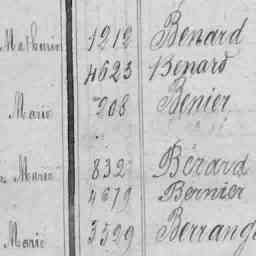 Mathurin 1212 Benard
4623 Benard
Marie 208 Benier
Marie 832 Bérard
4679 Bernier
Marie 3529 Berrang